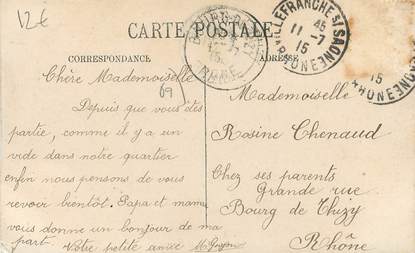 12€
CARTE POSTALE
CORRESPONDANCE
ADRESSE
VILLEFRANCHE S/ SAONE
45
11-7
15
RHONE
15
RHONE
BOURG-DE-THIZY
15
RHONE
69
Chère Mademoiselle
Depuis que vous êtes
partie, comme il y a un
vide dans notre quartier
enfin nous pensons de vous
revoir bientôt. Papa et mama
vous donne un bonjour de ma
part. Votre petite amie
Mademoiselle
Rosine Chenaud
Chez ses parents
Grande rue
Bourg de Thizy
Rhône